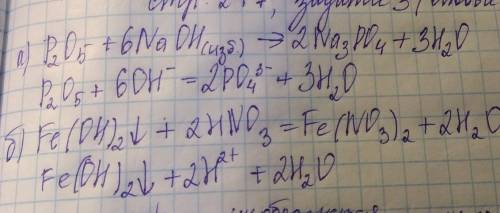 а) P₂O₅ + 6NaOH(изб) → 2Na₃PO₄ + 3H₂O
P₂O₅ + 6OH⁻ = 2PO₄³⁻ + 3H₂O
б) Fe(OH)₂↓ + 2HNO₃ = Fe(NO₃)₂ + 2H₂O
Fe(OH)₂↓ + 2H²⁺ + 2H₂O